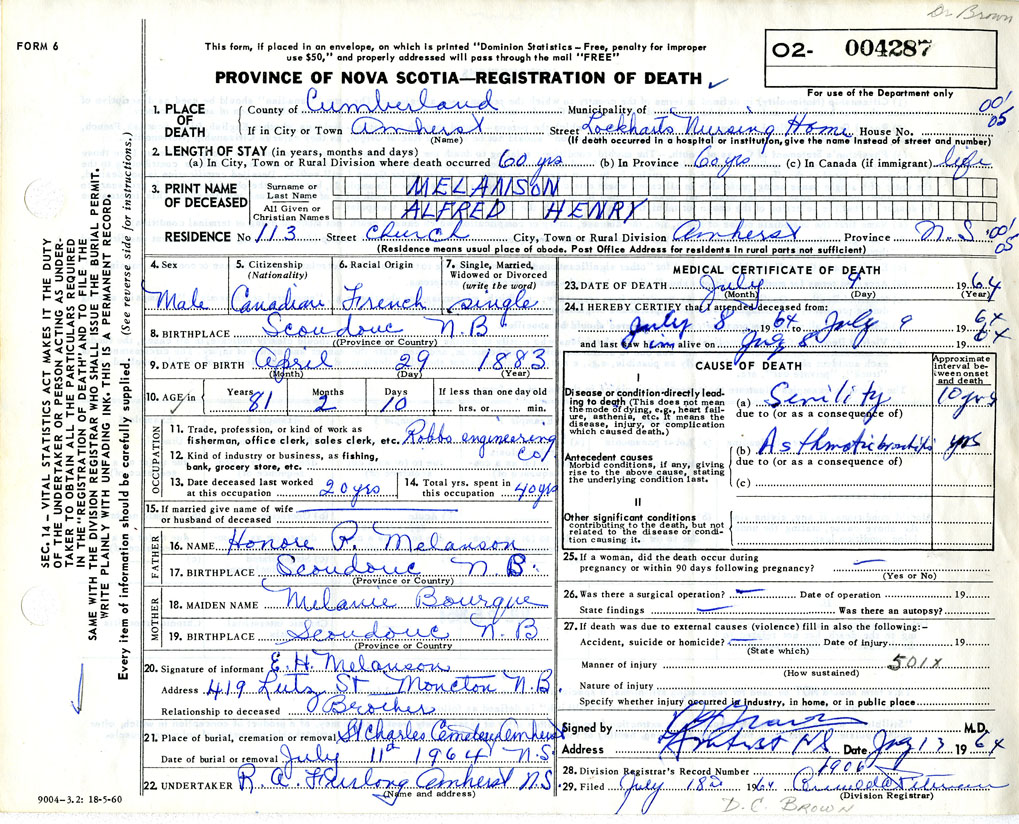 Dr Brown
FORM 6
This form, if placed in an envelope, on which is printed "Dominion Statistics – Free, penalty for improper
use $50," and properly addressed will pass through the mail "FREE"
O2- 004287
For use of the Department only
PROVINCE OF NOVA SCOTIA—REGISTRATION OF DEATH ✓
SEC. 14 – VITAL STATISTICS ACT MAKES IT THE DUTY
OF THE UNDERTAKER OR PERSON ACTING AS UNDER-
TAKER TO OBTAIN ALL THE PARTICULARS REQUIRED
IN THE "REGISTRATION OF DEATH" AND TO FILE THE
SAME WITH THE DIVISION REGISTRAR WHO SHALL ISSUE THE BURIAL PERMIT.
WRITE PLAINLY WITH UNFADING INK. THIS IS A PERMANENT RECORD.
Every item of information should be carefully supplied. (See reverse side for instructions.)
1. PLACE OF DEATH
County of Cumberland Municipality of 001
If in City or Town Amherst Street Lockharts Nursing Home House No. 05
(Name) (If death occurred in a hospital or institution, give the name instead of street and number)
2. LENGTH OF STAY (in years, months and days)
(a) In City, Town or Rural Division where death occurred 60 yrs (b) In Province 60 yrs (c) In Canada (if immigrant) life
3. PRINT NAME OF DECEASED
Surname or Last Name MELANSON
All Given or Christian Names ALFRED HENRY
RESIDENCE No 113 Street Church City, Town or Rural Division Amherst Province N.S 001
05
(Residence means usual place of abode. Post Office Address for residents in rural parts not sufficient)
4. Sex Male
5. Citizenship (Nationality) Canadian
6. Racial Origin French
7. Single, Married, Widowed or Divorced (write the word) single
8. BIRTHPLACE Scoudouc N.B
(Province or Country)
9. DATE OF BIRTH April 29 1883
(Month) (Day) (Year)
10. AGE in Years 81 Months 2 Days 10 If less than one day old hrs. or min.
OCCUPATION
11. Trade, profession, or kind of work as
fisherman, office clerk, sales clerk, etc. Robbs engineering
Co/
12. Kind of industry or business, as fishing,
bank, grocery store, etc.
13. Date deceased last worked at this occupation 20 yrs
14. Total yrs. spent in this occupation 40 yrs
15. If married give name of wife
or husband of deceased
FATHER
16. NAME Honore P. Melanson
17. BIRTHPLACE Scoudouc N.B.
(Province or Country)
MOTHER
18. MAIDEN NAME Melanie Bourque
19. BIRTHPLACE Scoudouc N.B
(Province or Country
20. Signature of informant E. H. Melanson
Address 419 Lutz St Moncton N.B.
Relationship to deceased Brother
21. Place of burial, cremation or removal St Charles Cemetery Amherst
Date of burial or removal July 11 1964 N.S
22. UNDERTAKER R. A. Furlong Amherst N.S
(Name and address)
9004–3.2: 18-5-60
MEDICAL CERTIFICATE OF DEATH
23. DATE OF DEATH July 9 1964
(Month) (Day) (Year)
24. I HEREBY CERTIFY that I attended deceased from:
July 8 1964 to July 9 1964
and last saw him alive on July 8 1964
CAUSE OF DEATH
Approximate interval between onset and death
I
Disease or condition directly lead-
ing to death (This does not mean
the mode of dying, e.g., heart fail-
ure, asthenia, etc. It means the
disease, injury, or complication
which caused death.)
(a) Senility 10 yrs
due to (or as a consequence of)
Antecedent causes
Morbid conditions, if any, giving
rise to the above cause, stating
the underlying condition last.
(b) Asthmatic bronchitis yrs
due to (or as a consequence of)
(c)
II
Other significant conditions
contributing to the death, but not
related to the disease or condi-
tion causing it.
25. If a woman, did the death occur during
pregnancy or within 90 days following pregnancy? —
(Yes or No)
26. Was there a surgical operation? — Date of operation 19
State findings — Was there an autopsy?
27. If death was due to external causes (violence) fill in also the following:–
Accident, suicide or homicide? — Date of injury 19
(State which)
Manner of injury 501X
(How sustained)
Nature of injury
Specify whether injury occurred in industry, in home, or in public place
Signed by M.D.
Address Amherst N.S Date July 13 1964
28. Division Registrar's Record Number 1906
29. Filed July 18 1964
(Division Registrar)
D. C. BROWN